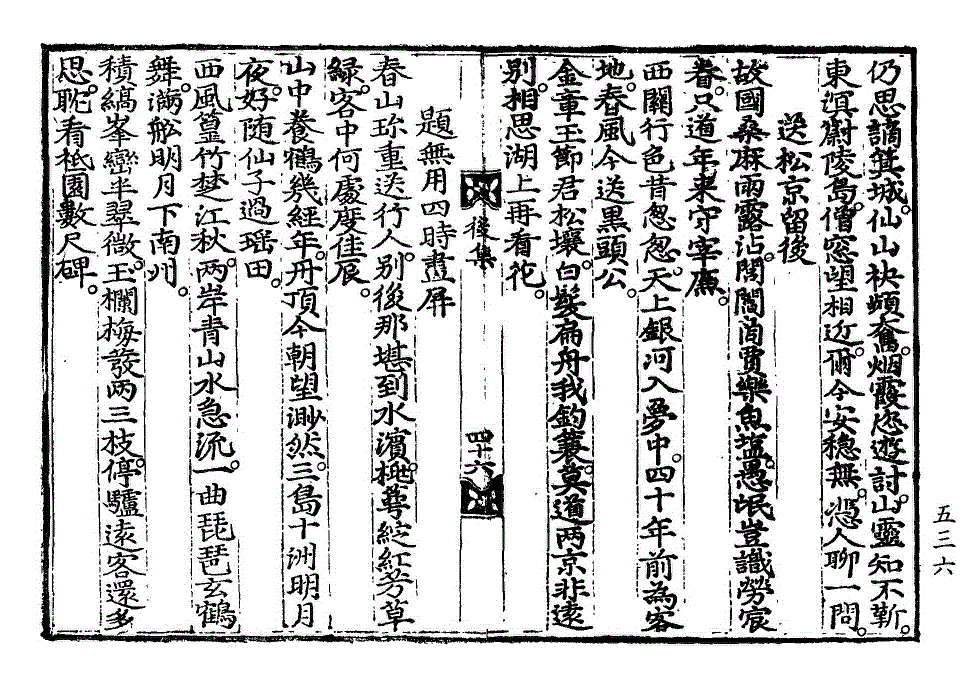 仍思謫箕城。仙山袂頻奮。烟霞恣遊討。山靈知不靳。
東溟蔚陵島。僧窓望相近。爾今安穩無。憑人聊一問。
送松京留後
故國桑麻雨露沾。閭閻商賈樂魚塩。愚氓豈識勞宸
眷。只道年来守宰廉。
西關行色昔怱怱。天上銀河入夢中。四十年前為客
地。春風今送黑頭公。
金章玉節君松壤。白髮扁舟我釣蓑。莫道两京非遠
別。相思湖上再看花。
後集
四十六
題無用四時畫屏
春山珎重送行人。別後那堪到水濱。桃萼綻紅芳草
緑。客中何處度佳辰。
山中養鶴幾經年。丹頂今朝望渺然。三島十洲明月
夜。好随仙子過瑶田。
西風篁竹楚江秋。两岸青山水急流。一曲琵琶玄鶴
舞。滿舩明月下南州。
積縞峯巒半翠微。玉欄梅發两三枝。停驢遠客還多
思。眂看祗園數尺碑。
五三六